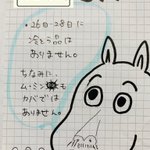 ・26日-28日に
冷とう品は
ありません。
ちなみに、
ムーミンも
カバでは
ありません。